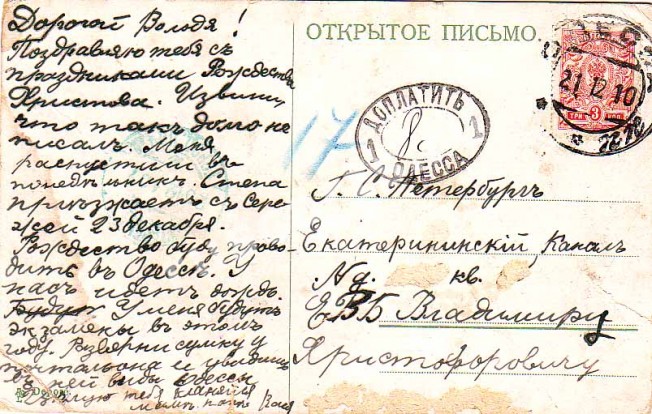 Дорогой Володя!
Поздравляю тебя съ
праздниками Рождества
Христова. Извини
что такъ долго не
писалъ. Меня
распустили въ
понедѣльникъ. Степа
пріѣзжаетъ съ Сере-
жей 23 декабря.
Рождество буду прово-
дить въ Одессѣ. У
насъ идетъ дождь.
У меня будутъ
экзамены въ этомъ
году. сумку у
почтальона и увидишь
въ ней виды Одессы
тебя
ОТКРЫТОЕ ПИСЬМО.
ОДЕССА
21 12 10
3
ТРИ КОП.
ДОПЛАТИТЬ
1 1
ОДЕССА
17
Г. С. Петербургъ
Екатерининскій Каналъ
кв.
ЕВБ Владимиру
Христофоровичу